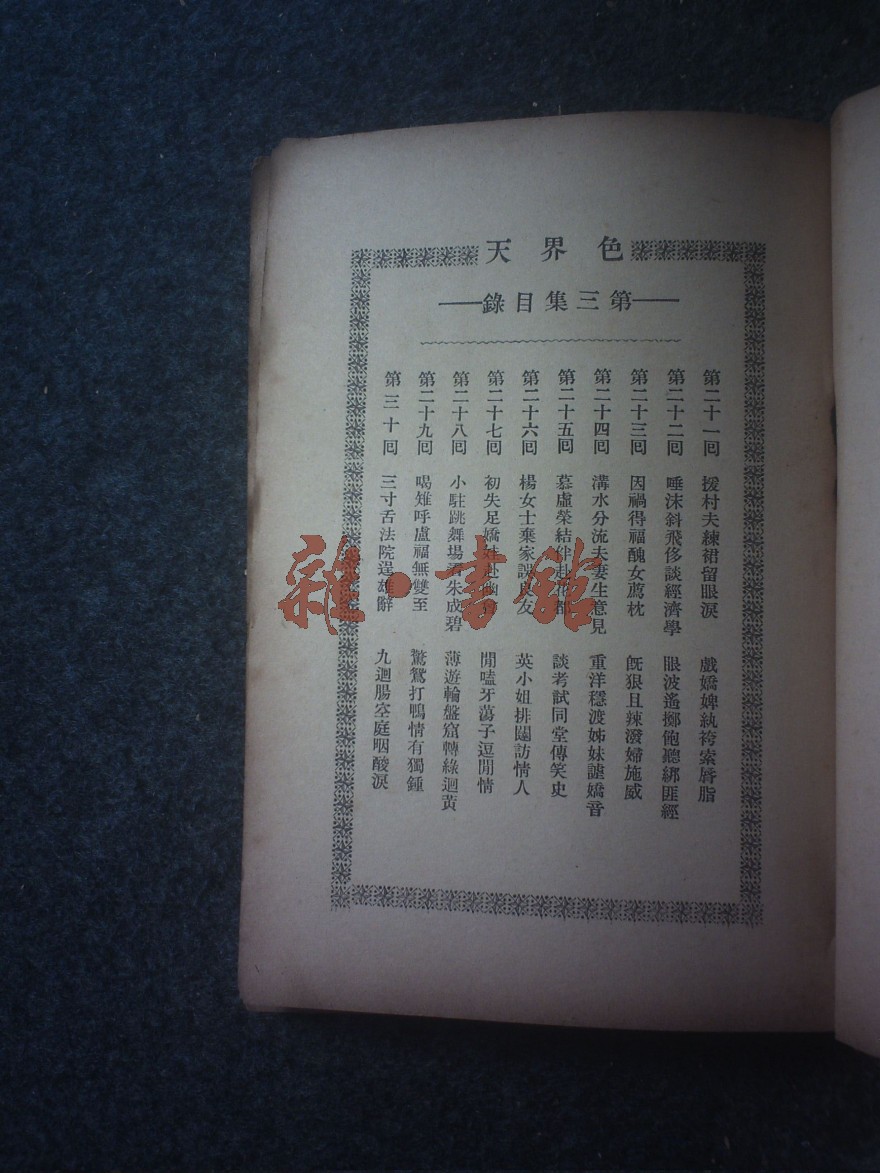 色界天
第三集目錄
第二十一回 援村夫練裙留眼淚 戲嬌婢紈袴索唇脂
第二十二回 唾沫斜飛侈談經濟學 眼波遙擲飽聽綁匪經
第二十三回 因禍得福醜女薦枕 旣狠且辣潑婦施威
第二十四回 溝水分流夫妻生意見 重洋穩渡姊妹謔嬌音
第二十五回 慕虛榮結伴赴花都 談考試同堂傳笑史
第二十六回 楊女士棄家誤良友 英小姐排闥訪情人
第二十七回 初失足嬌娃赴幽 閒嗑牙蕩子逗閒情
第二十八回 小駐跳舞場看朱成碧 薄遊輪盤窟轉綠迴黃
第二十九回 喝雉呼盧福無雙至 驚鴛打鴨情有獨鍾
第三十回 三寸舌法院逞雄辭 九迴腸空庭咽酸淚
雜·書館